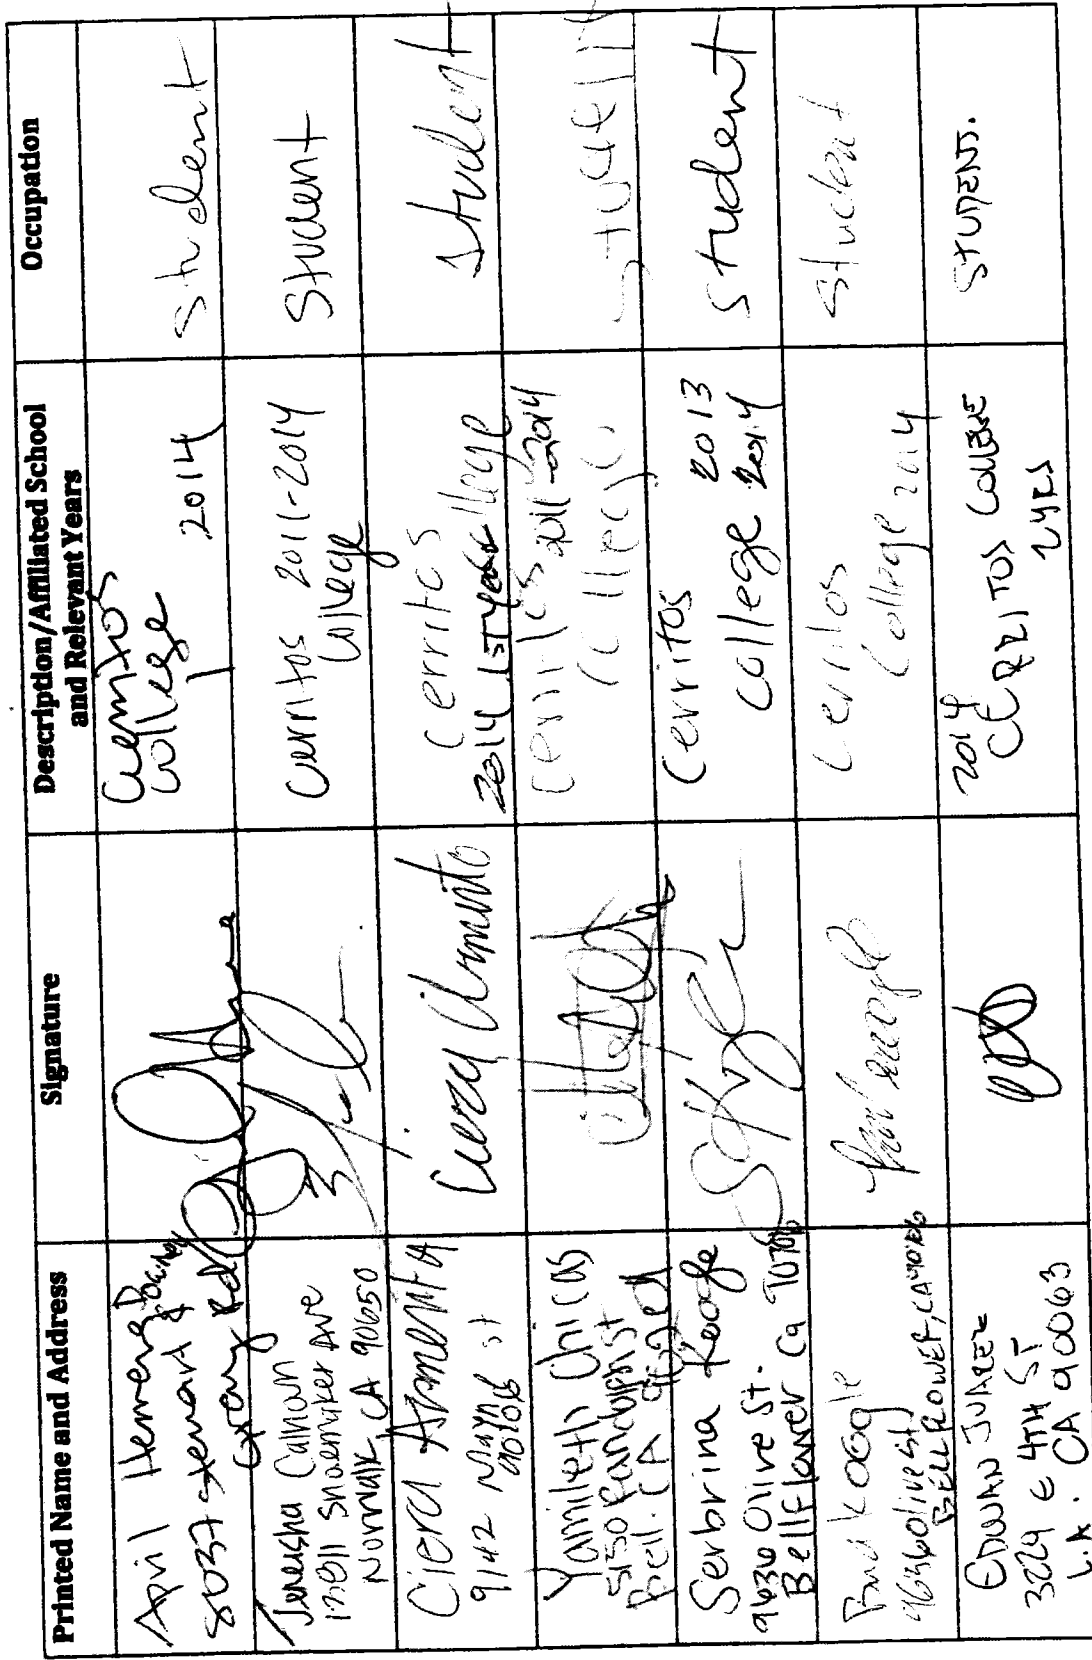 Printed Name and Address
Signature
Description/Affiliated School
and Relevant Years
Occupation
April
8037 Stewart &
Gray Rd
Downey
Cerritos
College
2014
Student
Calhoun
Shoemaker Ave
Norwalk, CA 90650
Cerritos 2011-2014
College
Student
Ciera Armenta
9142
90706
Ciera Armenta
Cerritos
College
2014 1st year
Student
Yamileth Chicas
5150 Randolph st
Bell. CA 90201
Cerritos 2011-2014
College
Student
Serbrina Koogle
9636 Olive St.
Bellflower Ca 90706
Cerritos 2013
College 2014
Student
Koogle
9636 Olive st
BELLFLOWER, CA 90706
Cerritos
College 2014
Student
EDWAN JUAREZ
3229 E 4TH ST
L.A. CA 90063
2014
CERRITOS COLLEGE
2 YRS
STUDENT.